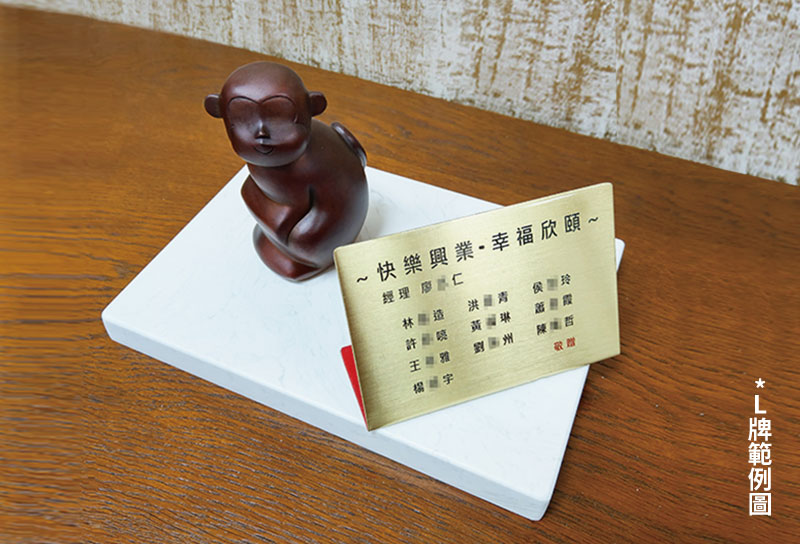 ~快樂興業-幸福欣頤~
經理 廖 仁
林 造 洪 青 侯 玲
許 曉 黃 琳 蕭 霞
王 雅 劉 州 陳 哲
楊 宇 敬贈
*L牌範例圖